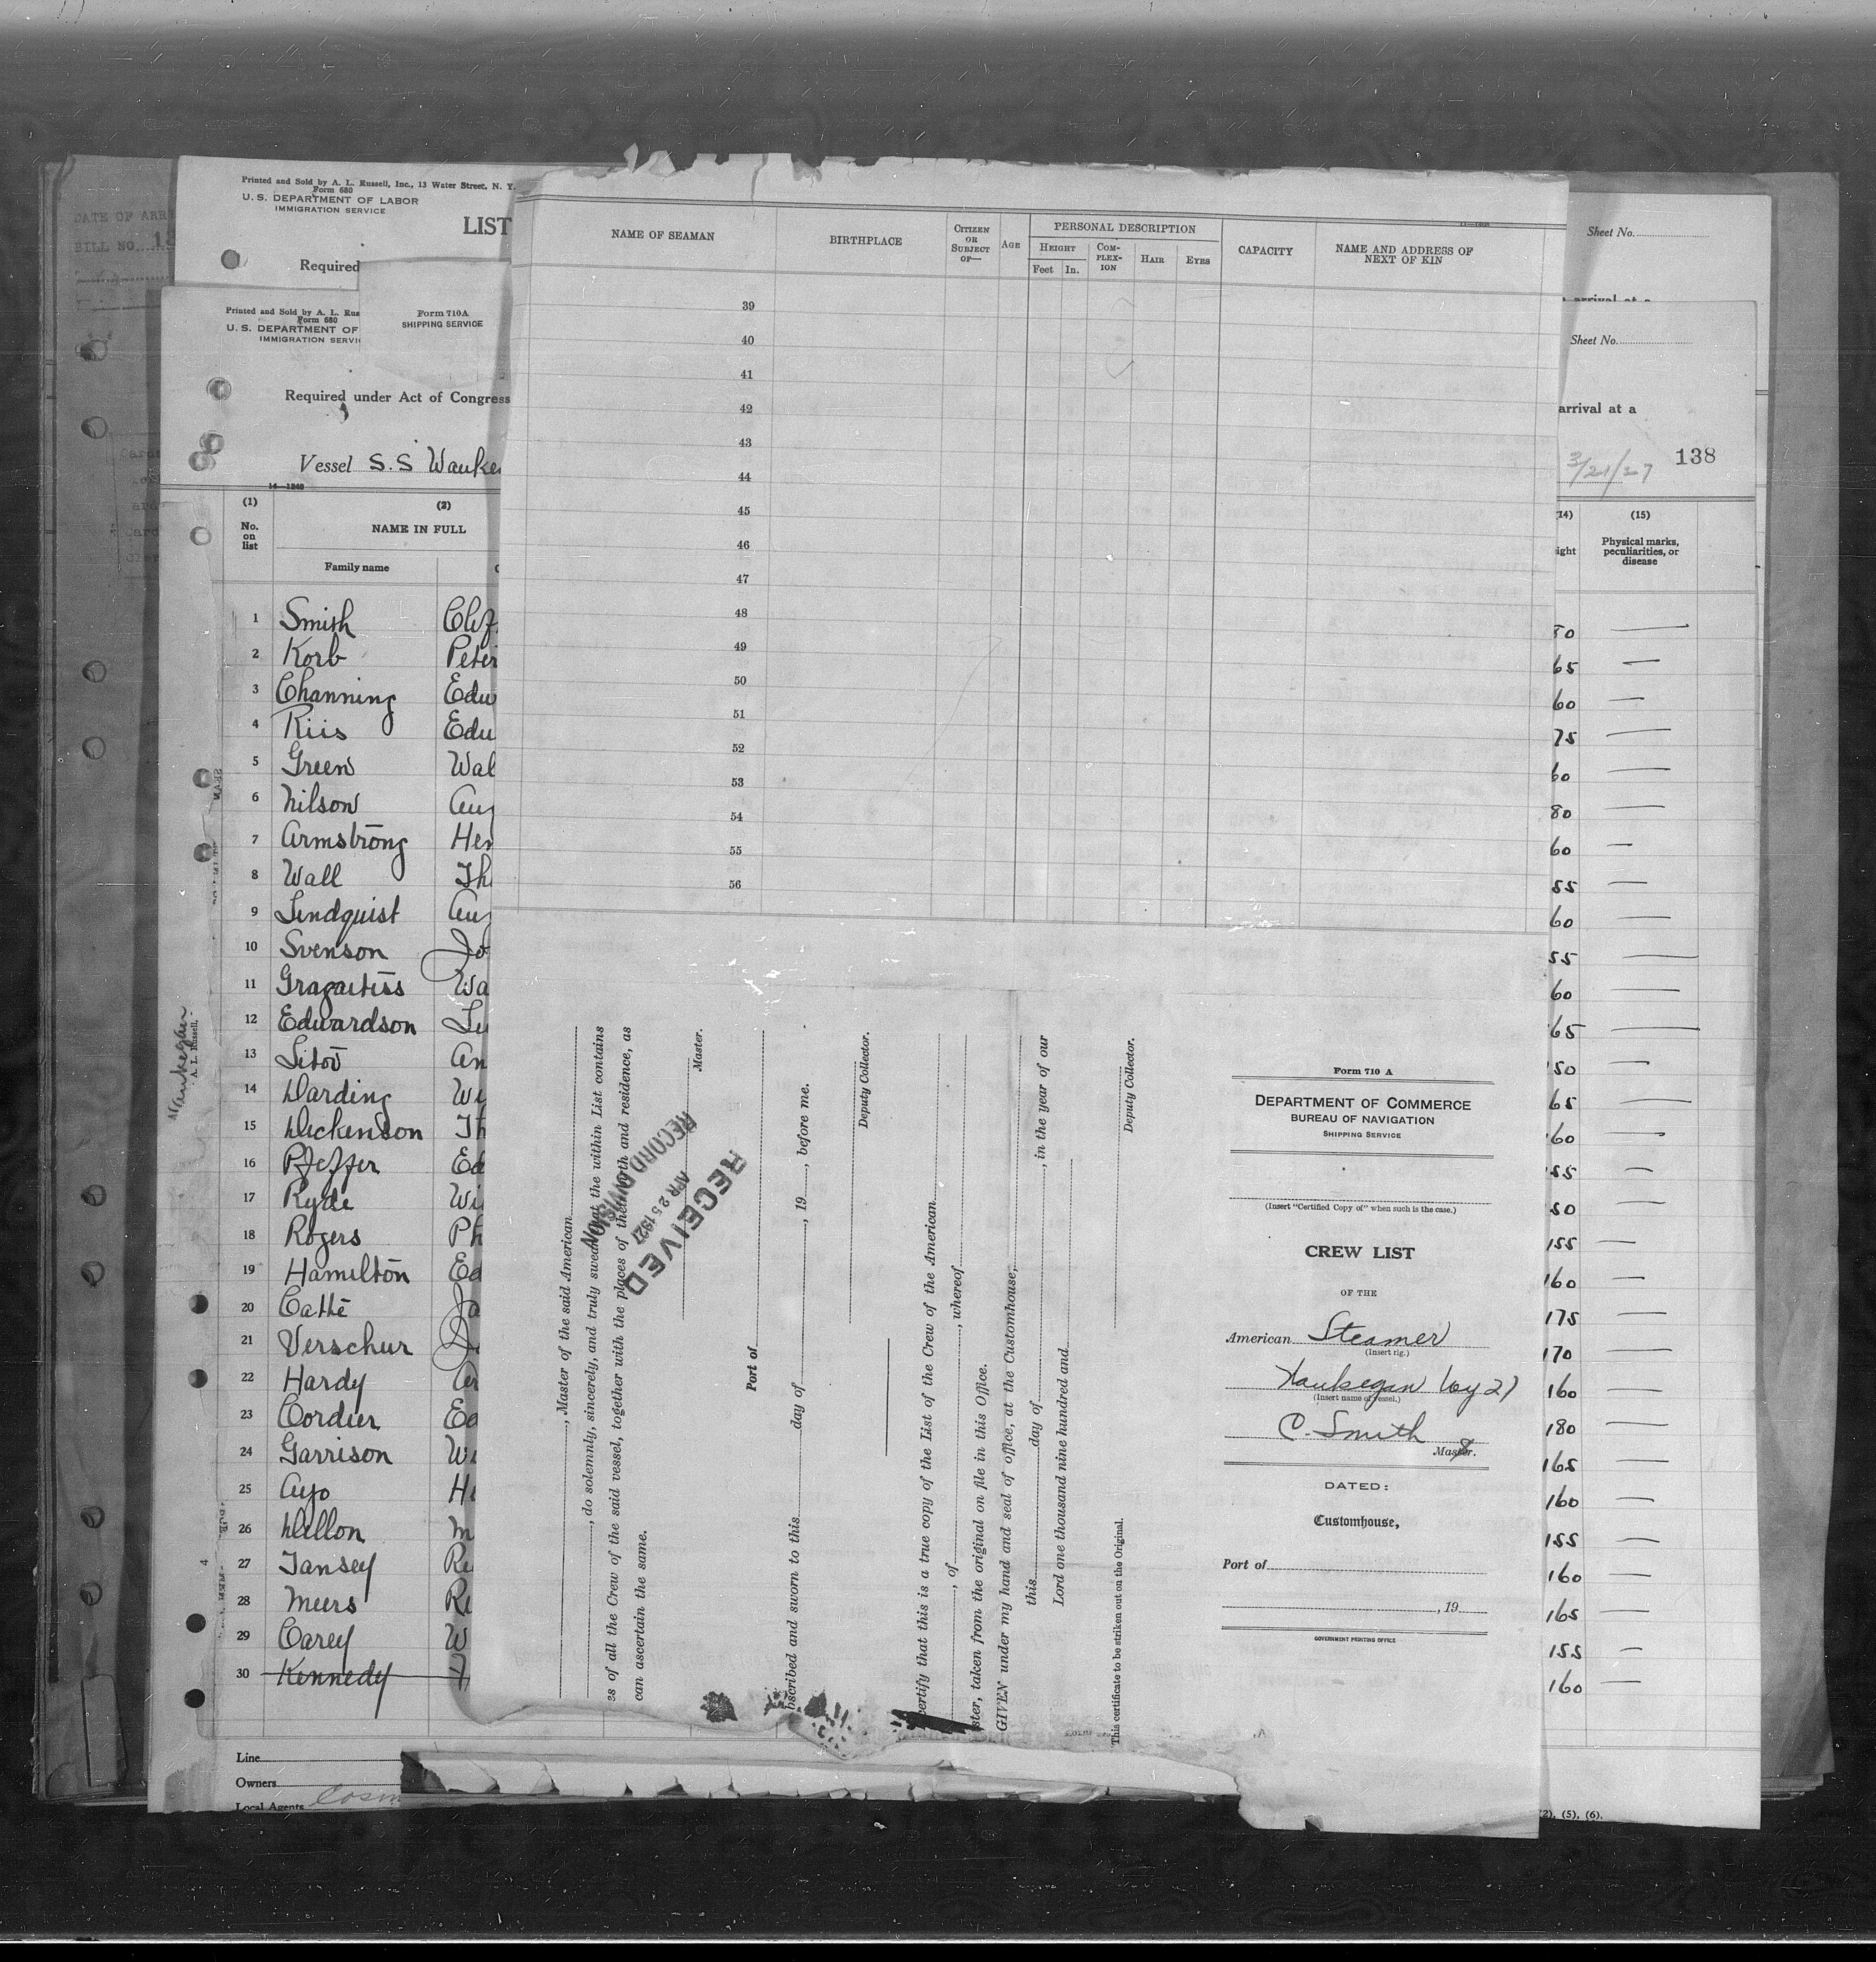 DATE OF ARR
BILL NO.
Printed and Sold by A. L. Russell, Inc., 13 Water Street, N. Y.
Form 680
U. S. DEPARTMENT OF LABOR
IMMIGRATION SERVICE
LIST
Required
Sheet No.
Printed and Sold by A. L. Rus
Form 680
U. S. DEPARTMENT OF
IMMIGRATION SERVI
Form 710A
SHIPPING SERVICE
Required under Act of Congress
Sheet No.
arrival at a
3/21/27 138
Vessel S.S Wauke
14—1240
(1) (2)
No. on list
NAME IN FULL
Family name
(14) (15)
ight
Physical marks, peculiarities, or disease
1 Smith 80 —
2 Korb Peter 65 —
3 Channing Edw 60 —
4 Riis Edw 75 —
5 Green Wal 60 —
6 Nilson Aug 80 —
7 Armstrong Hen 60 —
8 Wall Th 55 —
9 Lindquist Aug 60 —
10 Svenson Jo 55 —
11 Gragaitiss Wa 60 —
12 Edwardson Lu 65 —
13 Litov An 50 —
14 Darding Wi 65 —
15 Dickenson Th 160 —
16 Pfeffer Ed 155 —
17 Ryde Wi 50 —
18 Rogers Ph 155 —
19 Hamilton Ed 160 —
20 Catte Ja 175 —
21 Verschur Jo 170 —
22 Hardy Ar 160 —
23 Cordier Ed 180 —
24 Garrison Wi 165 —
25 Ayo He 160 —
26 Dillon M 155 —
27 Tansey Re 160 —
28 Meers Ri 165 —
29 Carey W 155 —
30 Kennedy 160 —
Line
Owners
Local Agents Cosm
(2), (5), (6).
Waukegan
A. L. Russell,
NAME OF SEAMAN
BIRTHPLACE
CITIZEN OR SUBJECT OF—
AGE
PERSONAL DESCRIPTION
HEIGHT
Feet In.
COM-PLEX-ION
HAIR
EYES
CAPACITY
NAME AND ADDRESS OF NEXT OF KIN
39
40
41
42
43
44
45
46
47
48
49
50
51
52
53
54
55
56
, Master of the said American
, do solemnly, sincerely, and truly swear that the within List contains
es of all the Crew of the said vessel, together with the places of their birth and residence, as
can ascertain the same.
Master.
Port of
bscribed and sworn to this day of , 19 , before me.
Deputy Collector.
certify that this is a true copy of the List of the Crew of the American
, of , whereof
ster, taken from the original on file in this Office.
GIVEN under my hand and seal of office, at the Customhouse,
this day of , in the year of our
Lord one thousand nine hundred and
Deputy Collector.
This certificate to be striken out on the Original.
RECEIVED
APR 25 1927
RECORD DIVISION
Form 710 A
DEPARTMENT OF COMMERCE
BUREAU OF NAVIGATION
SHIPPING SERVICE
(Insert "Certified Copy of" when such is the case.)
CREW LIST
OF THE
American Steamer
(Insert rig.)
Waukegan Voy 27
(Insert name of vessel.)
C. Smith
Master.
DATED:
Customhouse,
Port of
, 19
GOVERNMENT PRINTING OFFICE